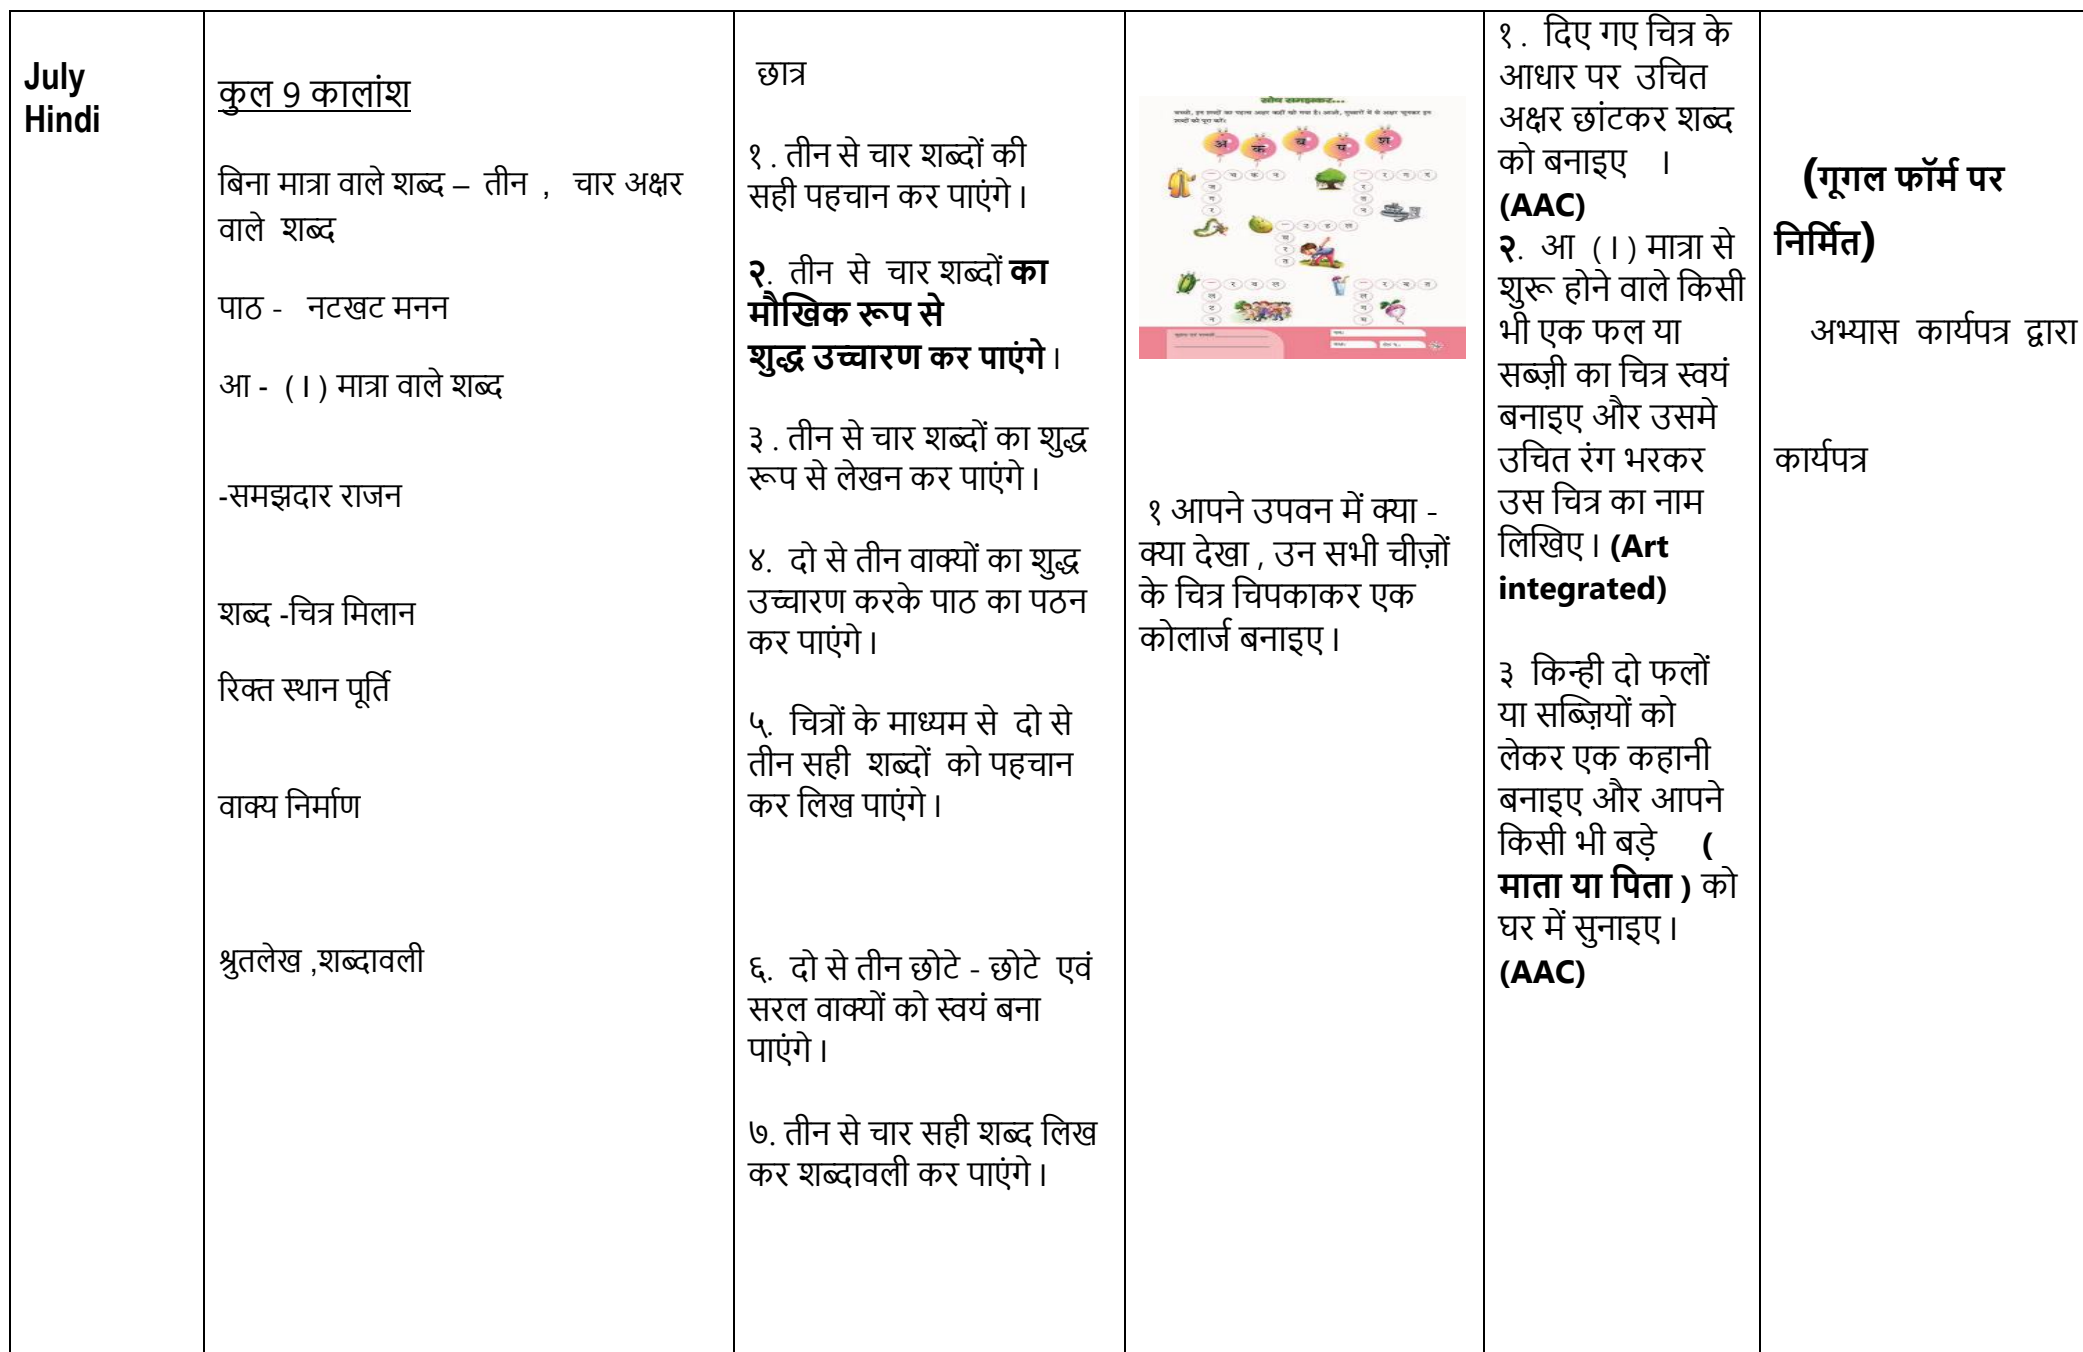 July
Hindi
कुल 9 कालांश
बिना मात्रा वाले शब्द – तीन , चार अक्षर
वाले शब्द
पाठ - नटखट मनन
आ - (ा) मात्रा वाले शब्द
-समझदार राजन
शब्द -चित्र मिलान
रिक्त स्थान पूर्ति
वाक्य निर्माण
श्रुतलेख ,शब्दावली
छात्र
१ . तीन से चार शब्दों की
सही पहचान कर पाएंगे ।
२. तीन से चार शब्दों का
मौखिक रूप से
शुद्ध उच्चारण कर पाएंगे ।
३ . तीन से चार शब्दों का शुद्ध
रूप से लेखन कर पाएंगे ।
४. दो से तीन वाक्यों का शुद्ध
उच्चारण करके पाठ का पठन
कर पाएंगे ।
५. चित्रों के माध्यम से दो से
तीन सही शब्दों को पहचान
कर लिख पाएंगे ।
६. दो से तीन छोटे - छोटे एवं
सरल वाक्यों को स्वयं बना
पाएंगे ।
७. तीन से चार सही शब्द लिख
कर शब्दावली कर पाएंगे ।
सोच समझकर...
अ क ब प श
१ आपने उपवन में क्या -
क्या देखा , उन सभी चीज़ों
के चित्र चिपकाकर एक
कोलार्ज बनाइए ।
१ . दिए गए चित्र के
आधार पर उचित
अक्षर छांटकर शब्द
को बनाइए ।
(AAC)
२. आ (ा) मात्रा से
शुरू होने वाले किसी
भी एक फल या
सब्ज़ी का चित्र स्वयं
बनाइए और उसमे
उचित रंग भरकर
उस चित्र का नाम
लिखिए । (Art
integrated)
३ किन्ही दो फलों
या सब्ज़ियों को
लेकर एक कहानी
बनाइए और आपने
किसी भी बड़े (
माता या पिता ) को
घर में सुनाइए ।
(AAC)
(गूगल फॉर्म पर
निर्मित)
अभ्यास कार्यपत्र द्वारा
कार्यपत्र